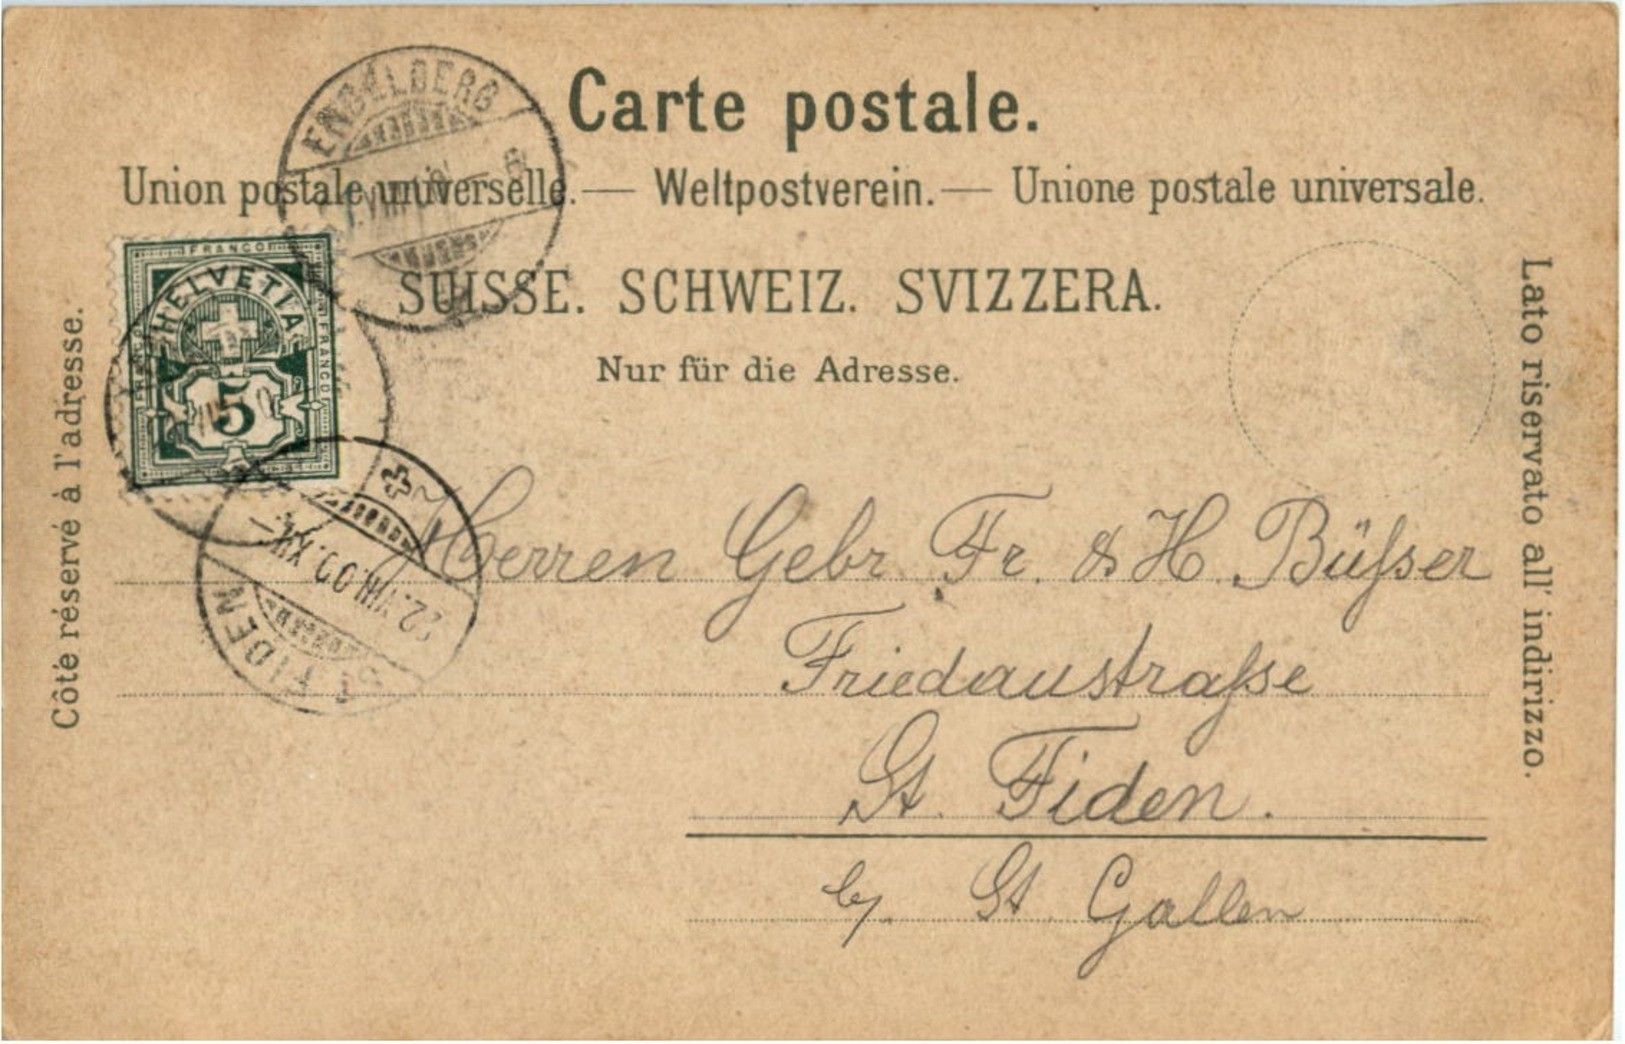 Carte postale.
Union postale universelle. — Weltpostverein. — Unione postale universale.
SUISSE. SCHWEIZ. SVIZZERA.
Nur für die Adresse.
Côté réservé à l'adresse.
Lato riservato all' indirizzo.
ENGELBERG
FRANCO
HELVETIA
FRANCO
5
22.VIII.00.XII
ST. FIDEN
Herren Gebr. Fr. & H. Büſser
Friedaustraſse
St. Fiden.
by. St. Gallen